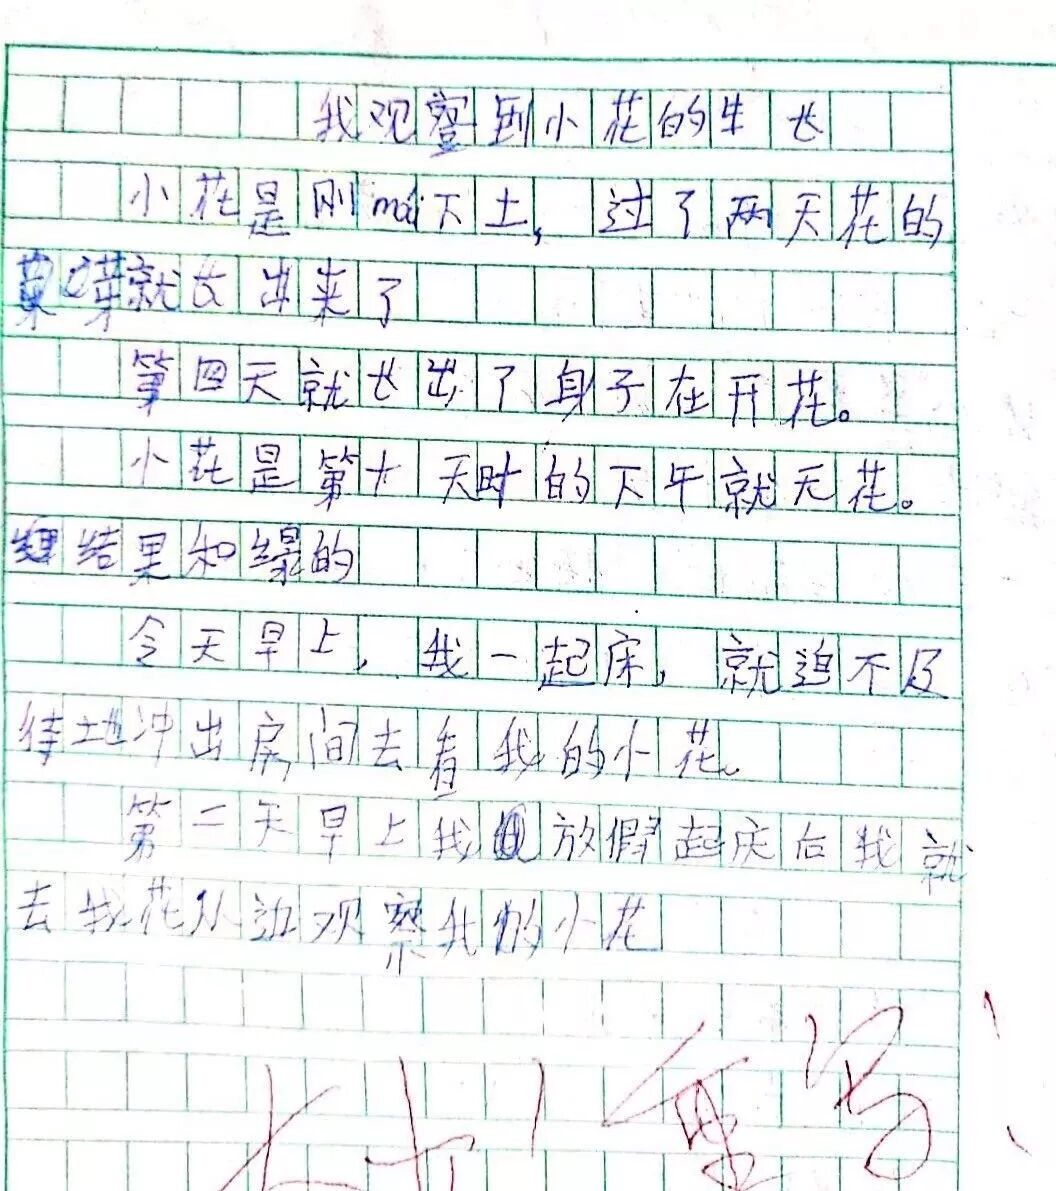 我观察到小花的生长
小花是刚mái下土，过了两天花的
芽就长出来了
第四天就长出了身子在开花。
小花是第十天时的下午就无花。
结果和缘的
今天早上，我一起床，就迫不及
待地冲出房间去看我的小花。
第二天早上我放假起床后我就
去我花从边观察我的小花
重写